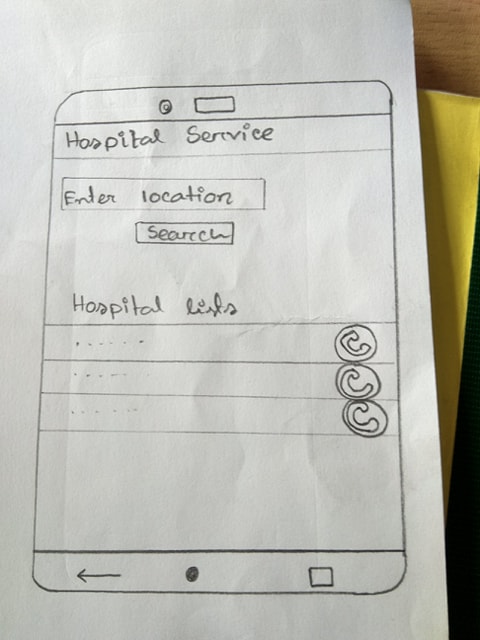 Hospital Serrvice
Enter location
Search
Hospital lists